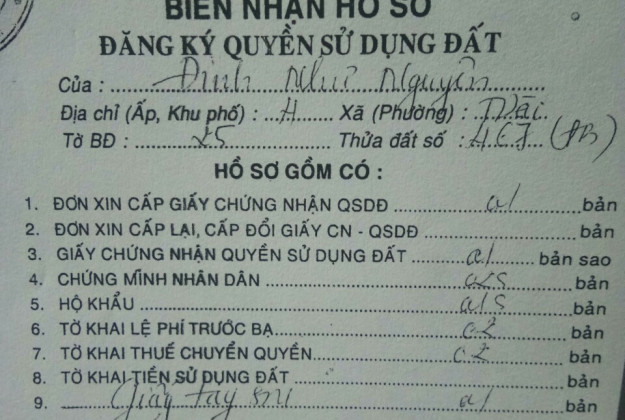 BIÊN NHẬN HỒ SƠ
ĐĂNG KÝ QUYỀN SỬ DỤNG ĐẤT
Của : Đinh Như Nguyên
Địa chỉ (Ấp, Khu phố) : 4 Xã (Phường) :
Tờ BĐ : 25 Thửa đất số : 467
HỒ SƠ GỒM CÓ :
1. ĐƠN XIN CẤP GIẤY CHỨNG NHẬN QSDĐ 01 bản
2. ĐƠN XIN CẤP LẠI, CẤP ĐỔI GIẤY CN - QSDĐ bản
3. GIẤY CHỨNG NHẬN QUYỀN SỬ DỤNG ĐẤT 01 bản sao
4. CHỨNG MINH NHÂN DÂN bản
5. HỘ KHẨU bản
6. TỜ KHAI LỆ PHÍ TRƯỚC BẠ 02 bản
7. TỜ KHAI THUẾ CHUYỂN QUYỀN 02 bản
8. TỜ KHAI TIỀN SỬ DỤNG ĐẤT bản
9. Giấy tay 01 bản